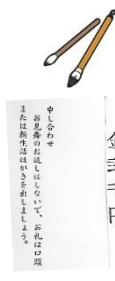 申し合わせ
お見舞のお返しはしないで、お礼は口頭
または新生活はがきを出しましょう。